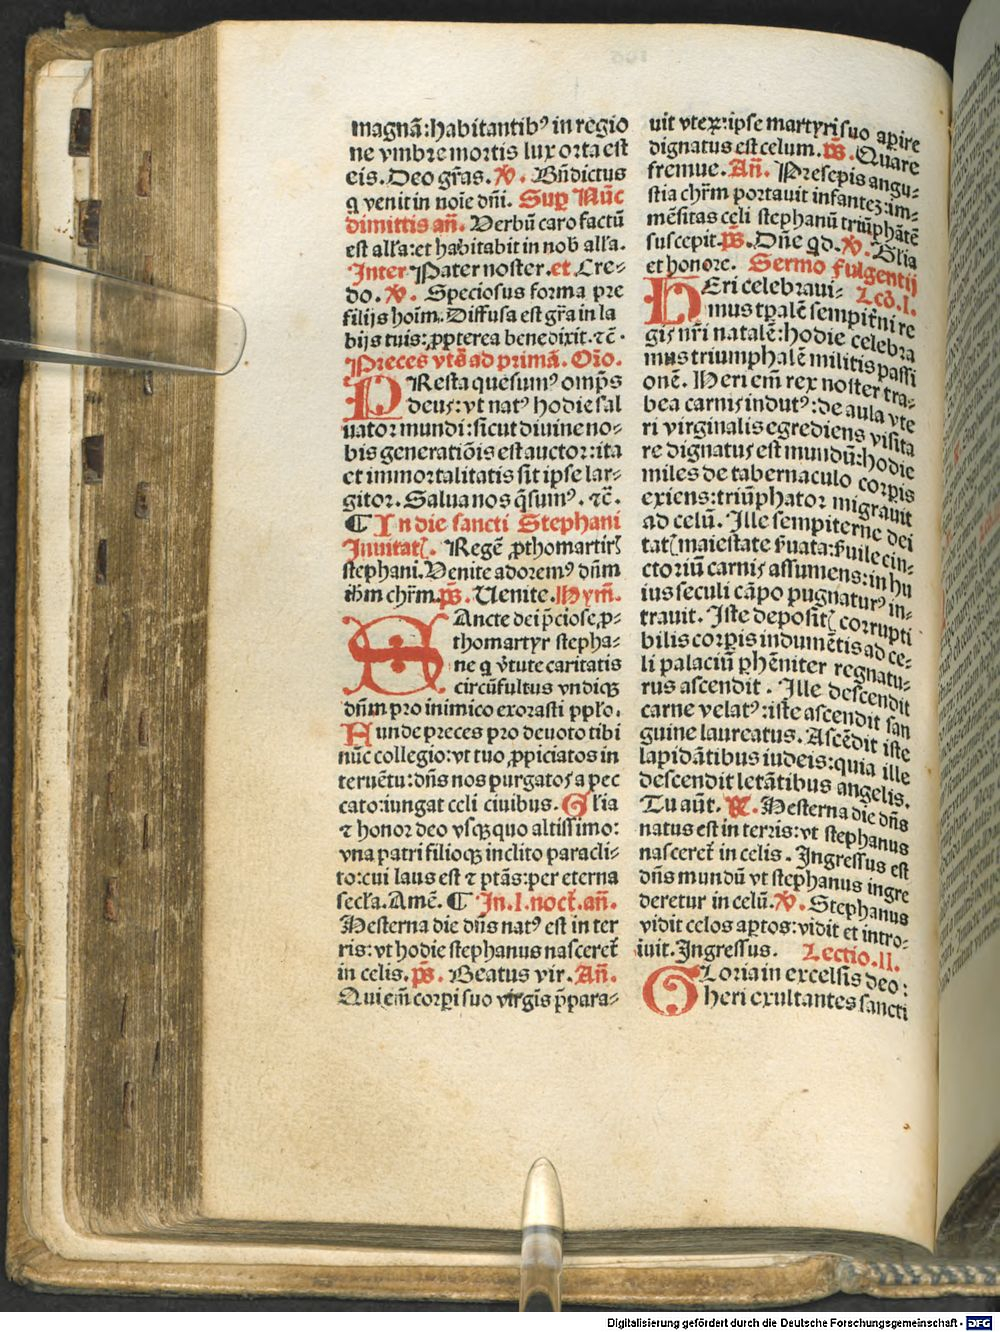 magnā:habitantib⁹ in regio
ne vmbre mortis lux orta est
eis. Deo gr̃as. ℣. Bñdictus
q venit in noīe dñi. Suꝑ Nūc
dimittis añ. Verbū caro factū
est all'a:et habitabit in nob all'a.
Inter Pater noster. et Cre⸗
do. ℣. Speciosus forma pre
filijs hoīm. Diffusa est gr̃a in la
bijs tuis: ꝓpterea benedixit. ⁊c̄.
Preces vts̄ ad primā. Or̄o.
PResta quesum⁹ omp̄s
deus: vt nat⁹ hodie sal
uator mundi: sicut diuine no⸗
bis generatiōis est auctor: ita
et immortalitatis sit ipse lar⸗
gitor. Salua nos q̄sum⁹. ⁊c̄.
¶ In die sancti Stephani
Inuitatꝭ. Regē ꝓthomartirꝭ
stephani. Venite adorem⁹ dñm
ih̄m chr̄m. p̄s. Uenite. Hym̄.
SAncte dei p̄ciose, ꝓ⸗
thomartyr stepha⸗
ne q v̄tute caritatis
circūfultus vndiqꝫ
dñm pro inimico exorasti pplo.
Aunde preces pro deuoto tibi
nūc collegio: vt tuo ꝓpiciatos in
teruētu: dñs nos purgatos a pec
cato: iungat celi ciuibus. Gl'ia
⁊ honor deo vsqꝫquo altissimo:
vna patri filioqꝫ inclito paracli⸗
to: cui laus est ⁊ ptās: per eterna
secl'a. Amē. ¶ In. I. noct̄. añ.
Hesterna die dñs nat⁹ est in ter
ris: vt hodie stephanus nasceret̄
in celis. p̄s. Beatus vir. Añ.
Qui em̄ corꝑi suo virgīs p̄para⸗
uit vteꝝ: ipse martyri suo aꝑire
dignatus est celum. p̄s. Quare
fremue. Añ. Presepis angu⸗
stia chr̄m portauit infantez: im⸗
mēsitas celi stephanū triūphātē
suscepit. p̄s. Dñe qd. ℣. Gl'ia
et honore. Sermo fulgentij
HEri celebraui⸗ Lcō. I.
mus tp̄alē sempit̄ni re
gis nr̄i natalē: hodie celebra
mus triumphalē militis passi
onē. Heri em̄ rex noster tra⸗
bea carnis indut⁹: de aula vte
ri virginalis egrediens visita
re dignatus est mundū: hodie
miles de tabernaculo corꝑis
exiens: triūphator migrauit
ad celū. Ille sempiterne dei
tatꝭ maiestate s̄uata: s̄uile cin⸗
ctoriū carnis assumens: in hu
ius seculi cāpo pugnatur⁹ in⸗
trauit. Iste depositꝭ corrupti
bilis corꝑis indumētis ad ce⸗
li palaciū ꝑhēniter regnatu⸗
rus ascendit. Ille descendit
carne velat⁹: iste ascendit san
guine laureatus. Ascēdit iste
lapidātibus iudeis: quia ille
descendit letātibus angelis.
Tu aūt. ℟. Hesterna die dñs
natus est in terris: vt stephanus
nasceret̄ in celis. Ingressus est
dñs mundū vt stephanus ingre
deretur in celū. ℣. Stephanus
vidit celos aꝑtos: vidit et intro⸗
iuit. Ingressus. Lectio. II.
GLoria in excelsis deo:
heri exultantes sancti
Digitalisierung gefördert durch die Deutsche Forschungsgemeinschaft - DFG